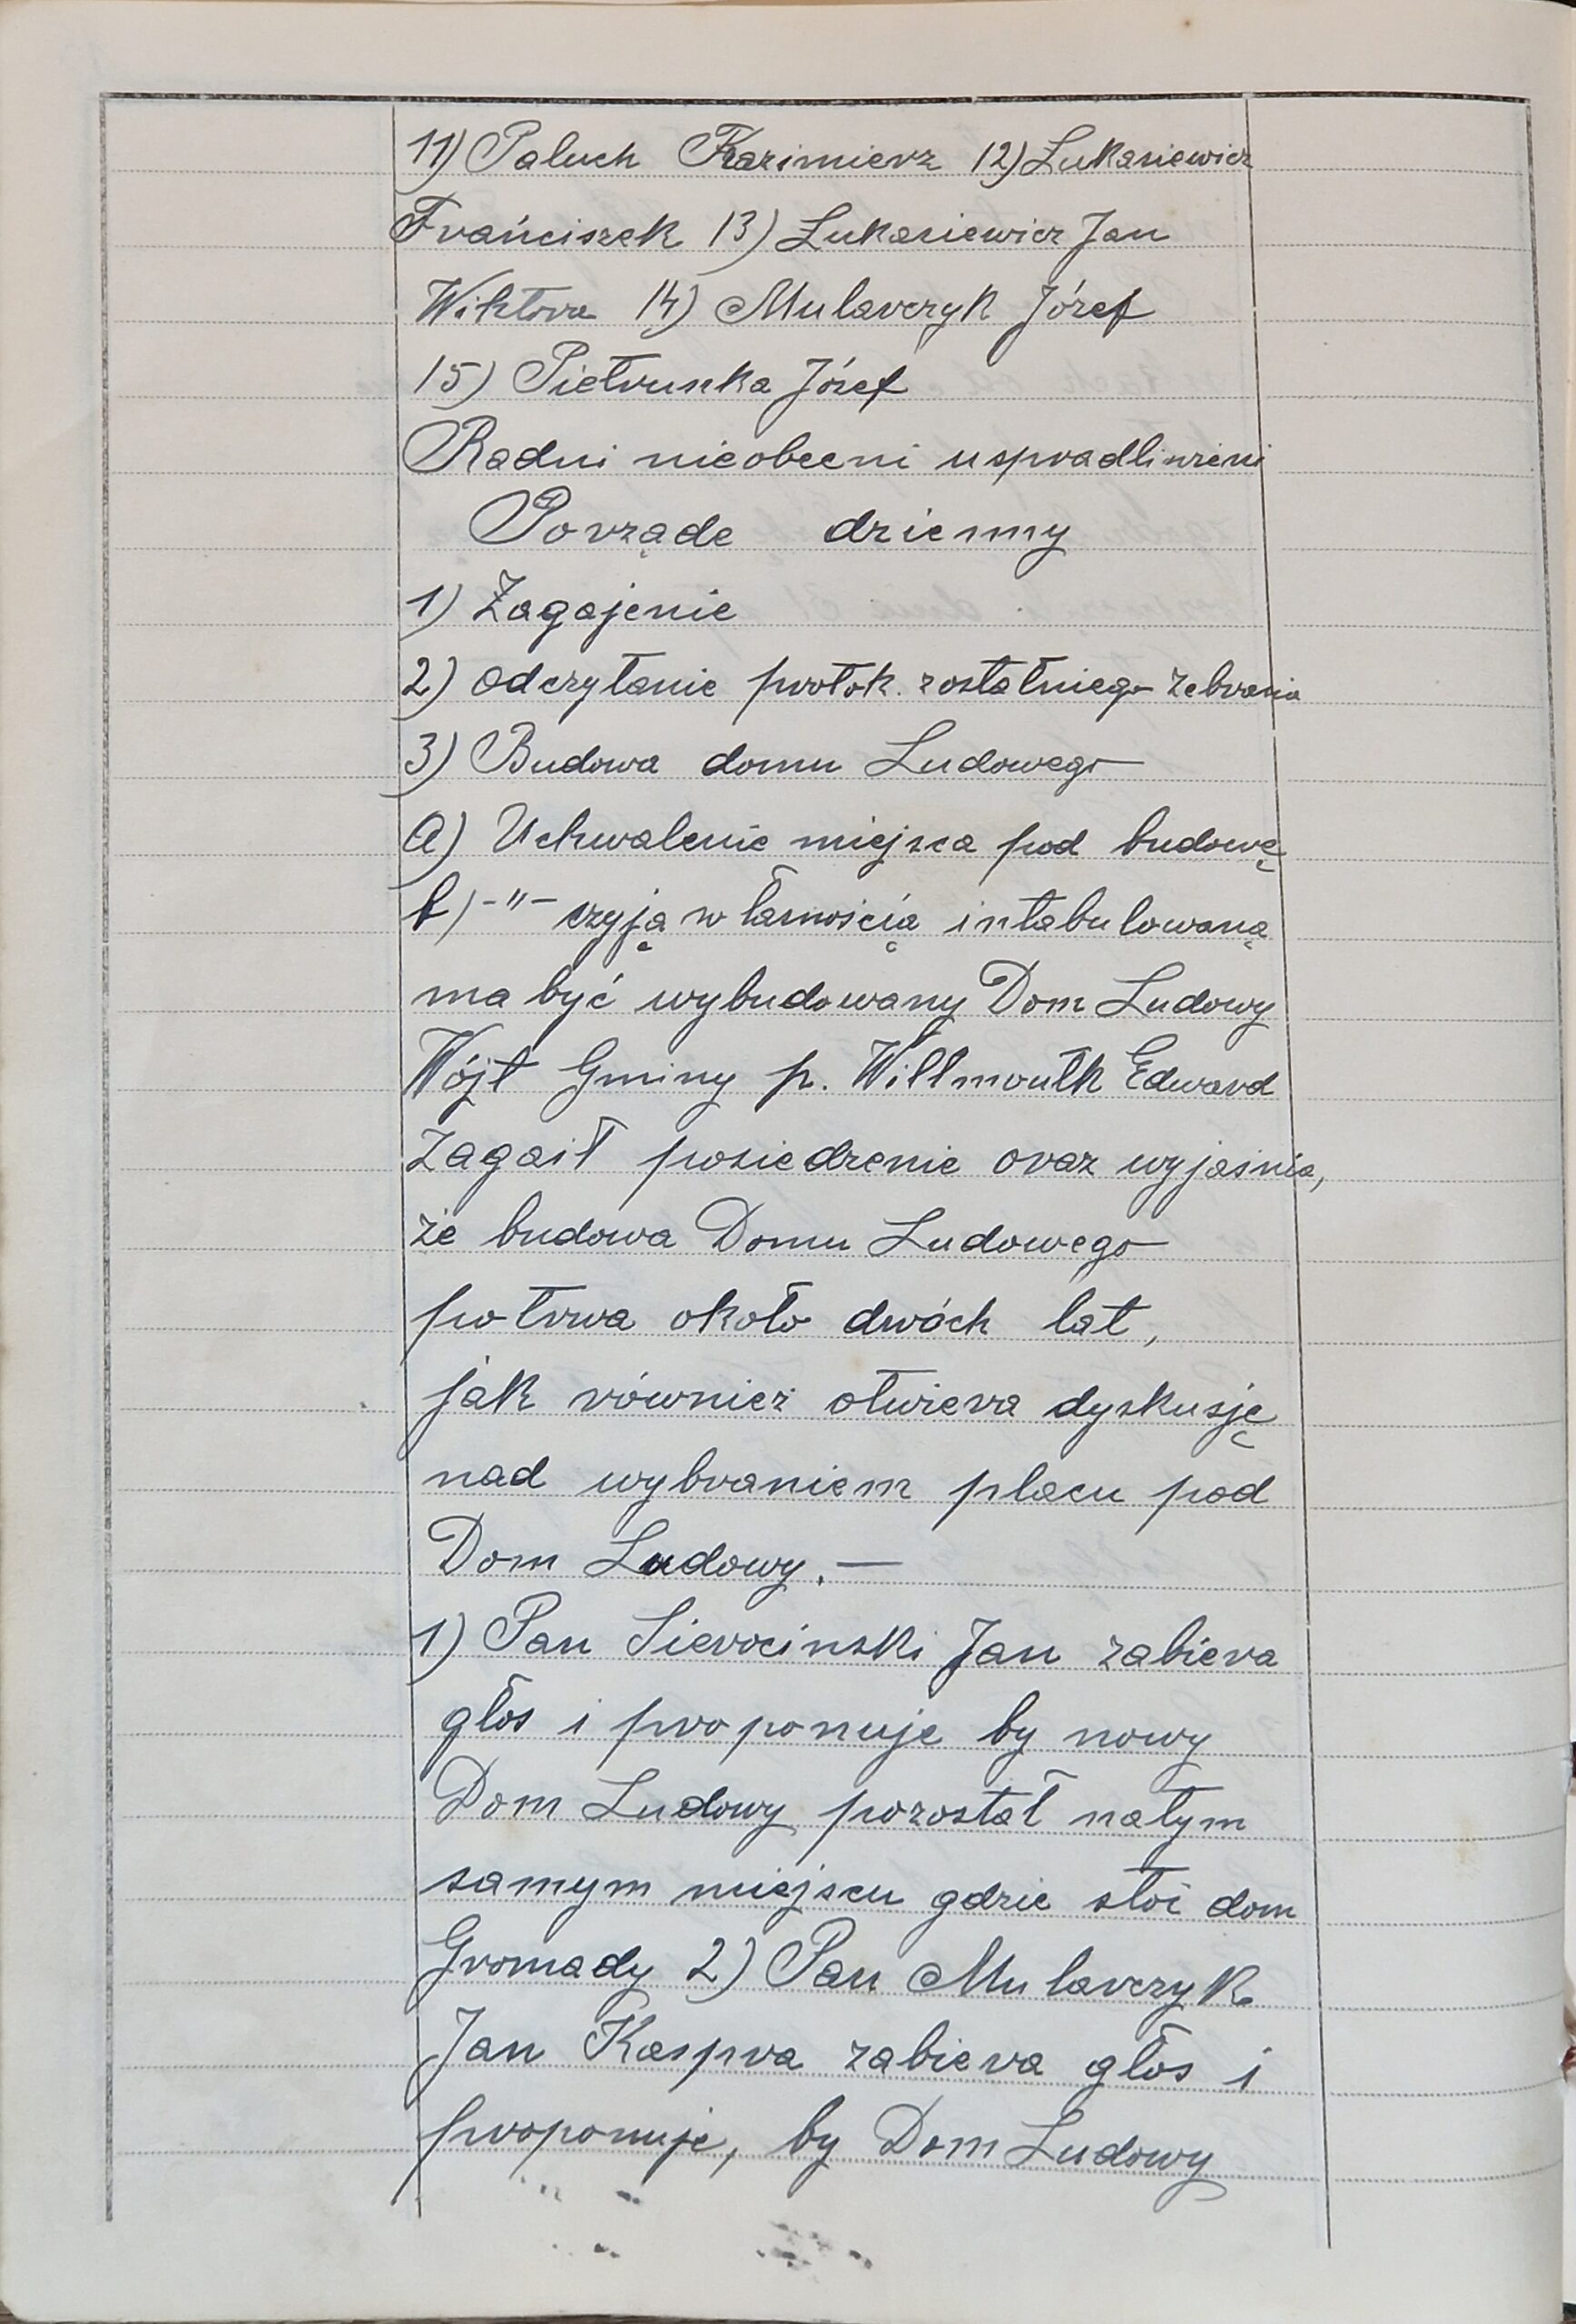 11) Paluch Kazimierz 12) Łukasiewicz
Frańciszek 13) Łukasiewicz Jan
Wiktora 14) Mularczyk Józef
15) Pietruszka Józef
Radni nieobecni uspradliwieni
Porząde dzienny
1) Zagajenie
2) odczytanie protok. zostatniego zebrania
3) Budowa domu Ludowego
a) Uchwalenie miejsca pod budowę
b) -"- czyją własnością intabulowaną
ma być wybudowany Dom Ludowy
Wójt Gminy p. Willmouth Edward
Zagaił posiedzenie oraz wyjaśnia,
że budowa Domu Ludowego
potrwa około dwóch lat,
jak również otwiera dyskusję
nad wybraniem placu pod
Dom Ludowy. —
1) Pan Sierocinski Jan zabiera
głos i proponuje by nowy
Dom Ludowy pozostał natym
samym miejscu gdzie stoi dom
Gromady 2) Pan Mularczyk
Jan Kaspra zabiera głos i
proponuje, by Dom Ludowy